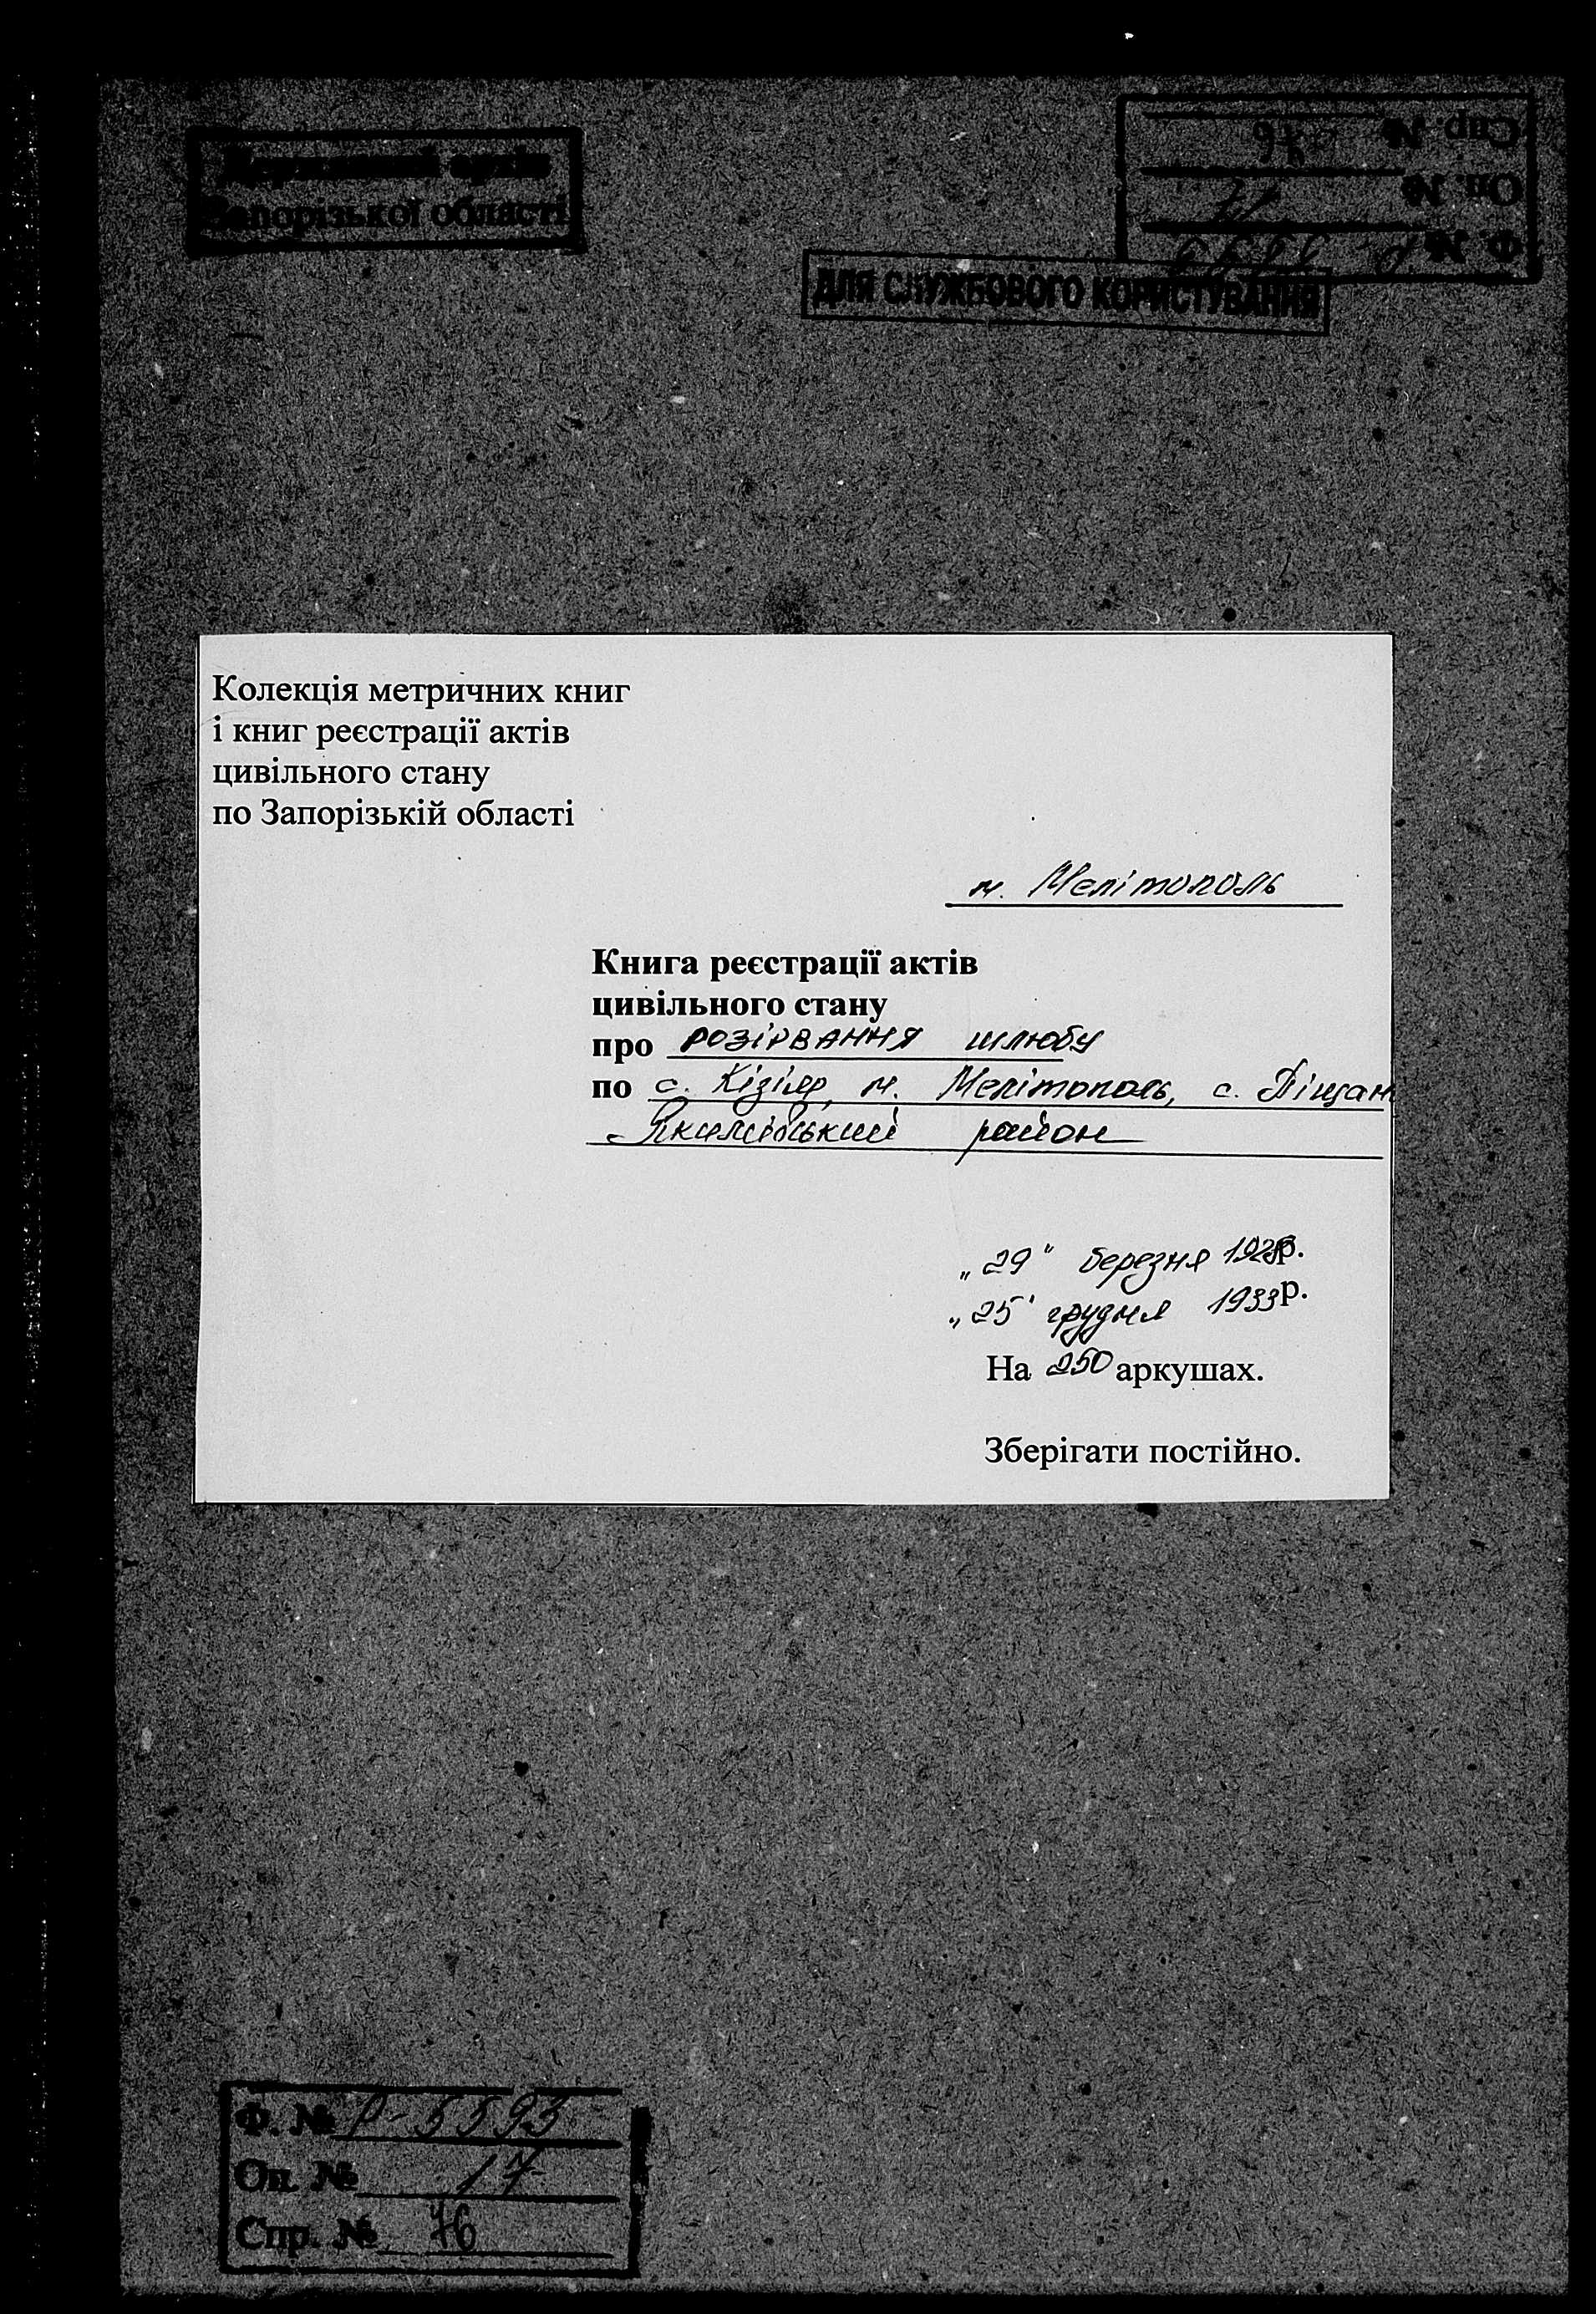 Державний архів
Запорізької області
Спр. №
Оп. №
Ф. №
ДЛЯ СЛУЖБОВОГО КОРИСТУВАННЯ
Колекція метричних книг
і книг реєстрації актів
цивільного стану
по Запорізькій області
м. Мелітополь
Книга реєстрації актів
цивільного стану
про розірвання шлюбу
по с. Кізіяр, м. Мелітополь, с. Піщан
Якимівський район
„29" березня р.
„25" грудня 1933р.
На 250 аркушах.
Зберігати постійно.
Ф. № Р-5593
Оп. № 17
Спр. № 76